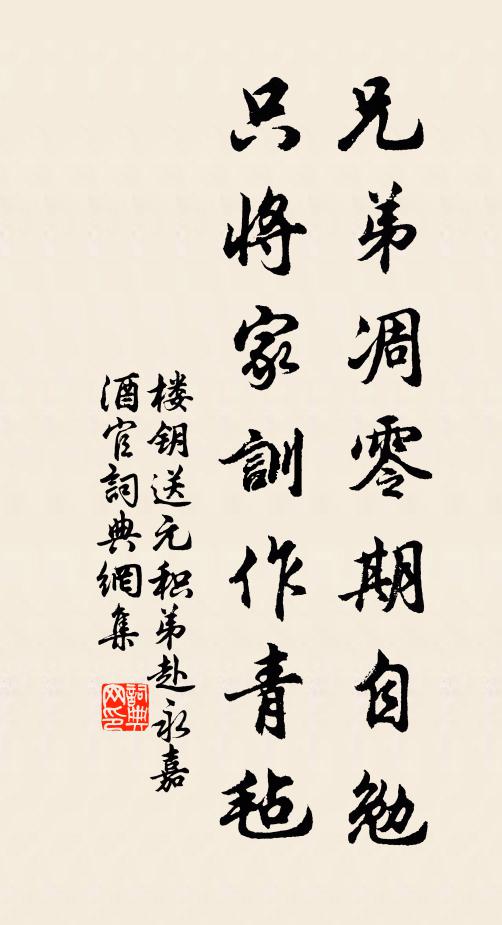 兄弟凋零期自勉
只將家訓作青毡
楼钥送元积弟赴永嘉
酒官詞典網集
詞典网印